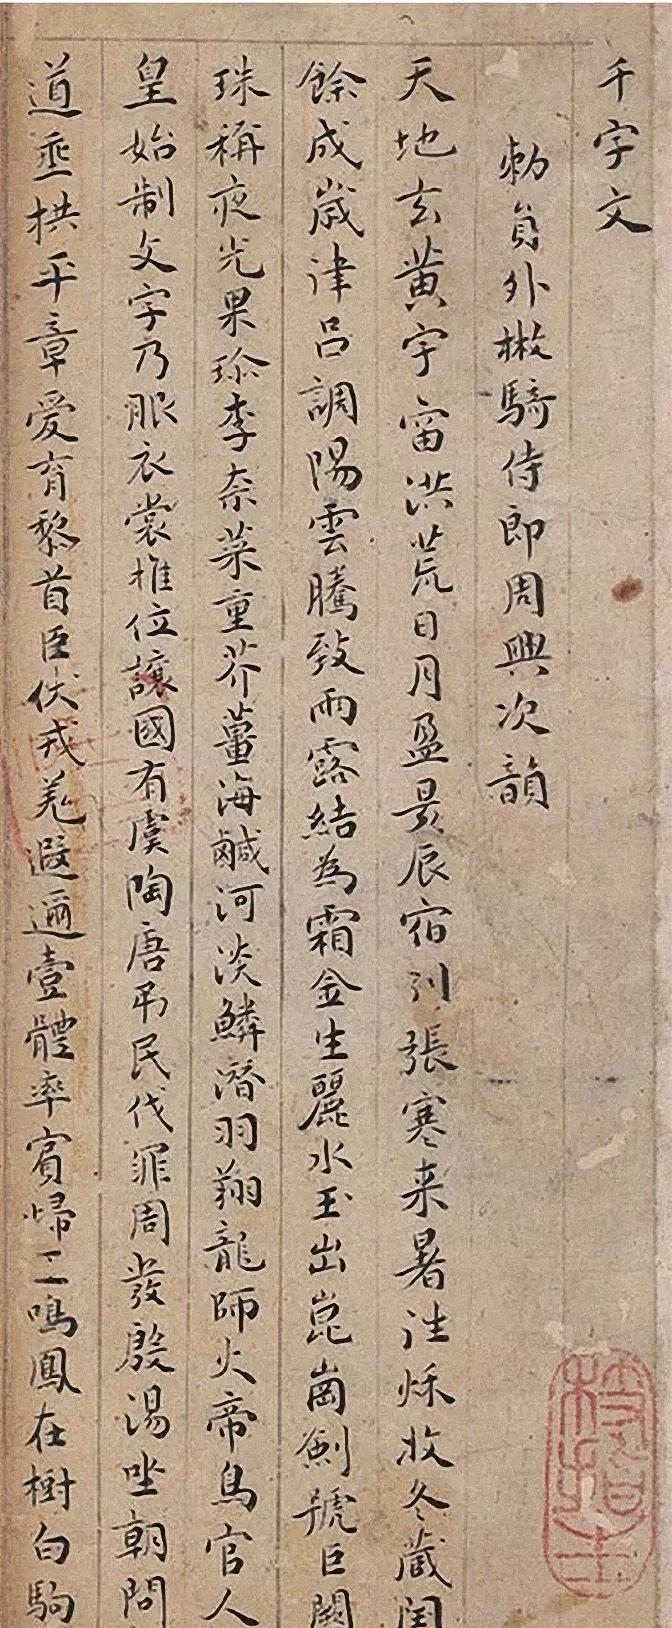 千字文
勑員外散騎侍郎周興次韻
天地玄黃宇宙洪荒日月盈昃辰宿列張寒来暑往秌收冬藏閏
餘成歲律吕調陽雲騰致雨露結為霜金生麗水玉出崑崗劍號巨闕
珠稱夜光果珎李柰菜重芥薑海鹹河淡鱗潛羽翔龍師火帝鳥官人
皇始制文字乃服衣裳推位讓國有虞陶唐弔民伐罪周發殷湯坐朝問
道垂拱平章愛育黎首臣伏戎羌遐邇壹體率賓歸王鳴鳳在樹白駒